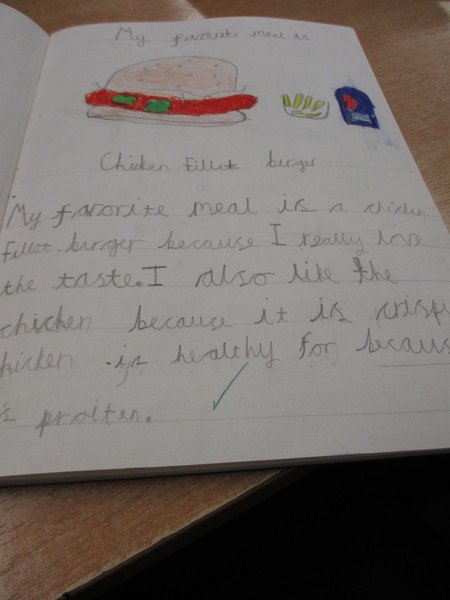 My favourite meal is
Chicken fillet burger
My favorite meal is a chicken
fillet burger because I really love
the taste. I also like the
chicken because it is crispy
hicken is healthy for becaus
is proiten.